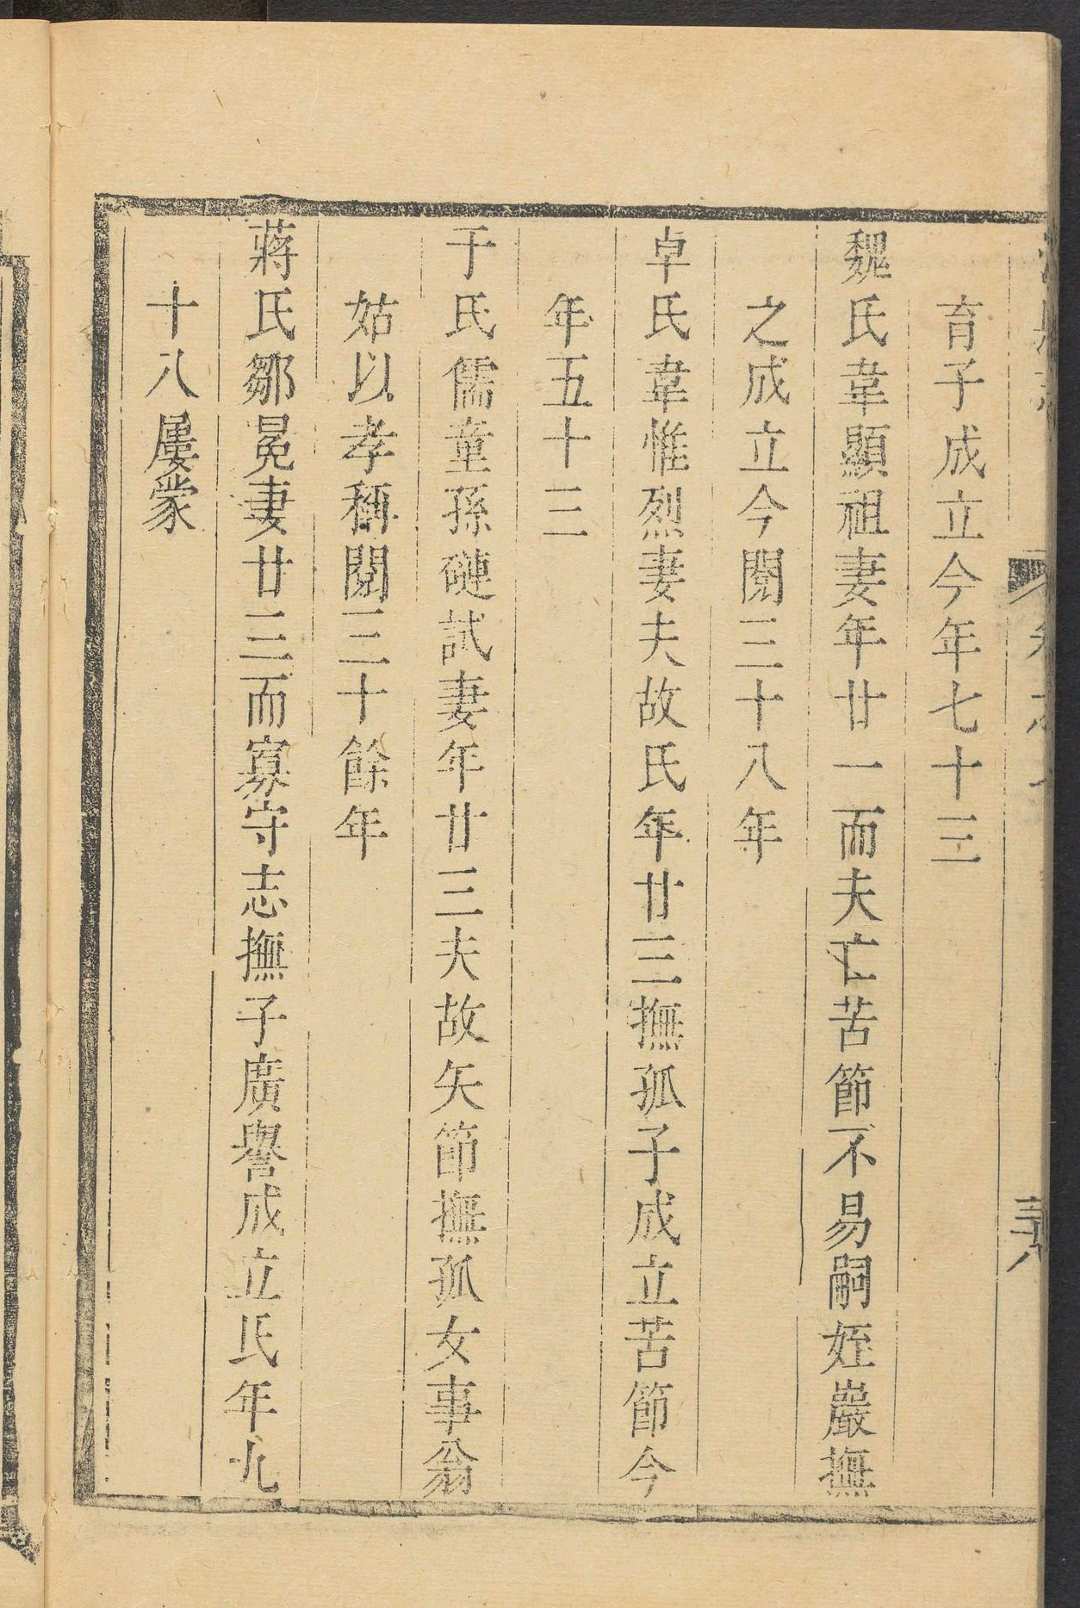 育子成立今年七十三
魏氏韋顯祖妻年廿一而夫亡苦節不易嗣姪巖撫
之成立今閱三十八年
卓氏韋惟烈妻夫故氏年廿三撫孤子成立苦節今
年五十三
于氏儒童孫璉試妻年廿三夫故矢節撫孤女事翁
姑以孝稱閱三十餘年
蔣氏鄒冕妻廿三而寡守志撫子廣譽成立氏年九
十八屢蒙